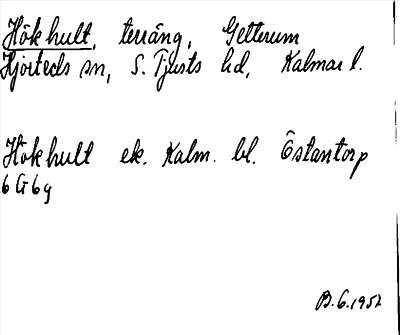 Hökhult, terräng, Getterum
Hjorteds sn, S. Tjusts hd, Kalmar l.
Hökhult ek. Kalm. bl. Östantorp
6 G 6 g
B. 6. 1952